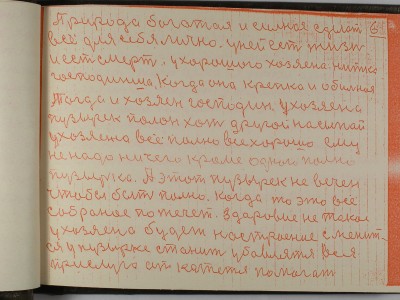 Природа богатая и сильная сделат 64
всё для себя лично. у ней ест жизн
и ест смерт. у хорошого хозяена нитко
господинща, когда она крепка и обилная
Тогда и хозяен господин. у хозяена
пузырек полон хот другой насипай
у хозяена всё полно всё хорошо ему
не надо ничего кроме одного полно
пузирка. А этот пузырек не вечен
чтобы быть полно. когда то это всё
собраное потечет. здаровие не такое
у хозяена будет настроение сменит-
ся у пузырке станит убавлятся вся
прислуга от катется помагат